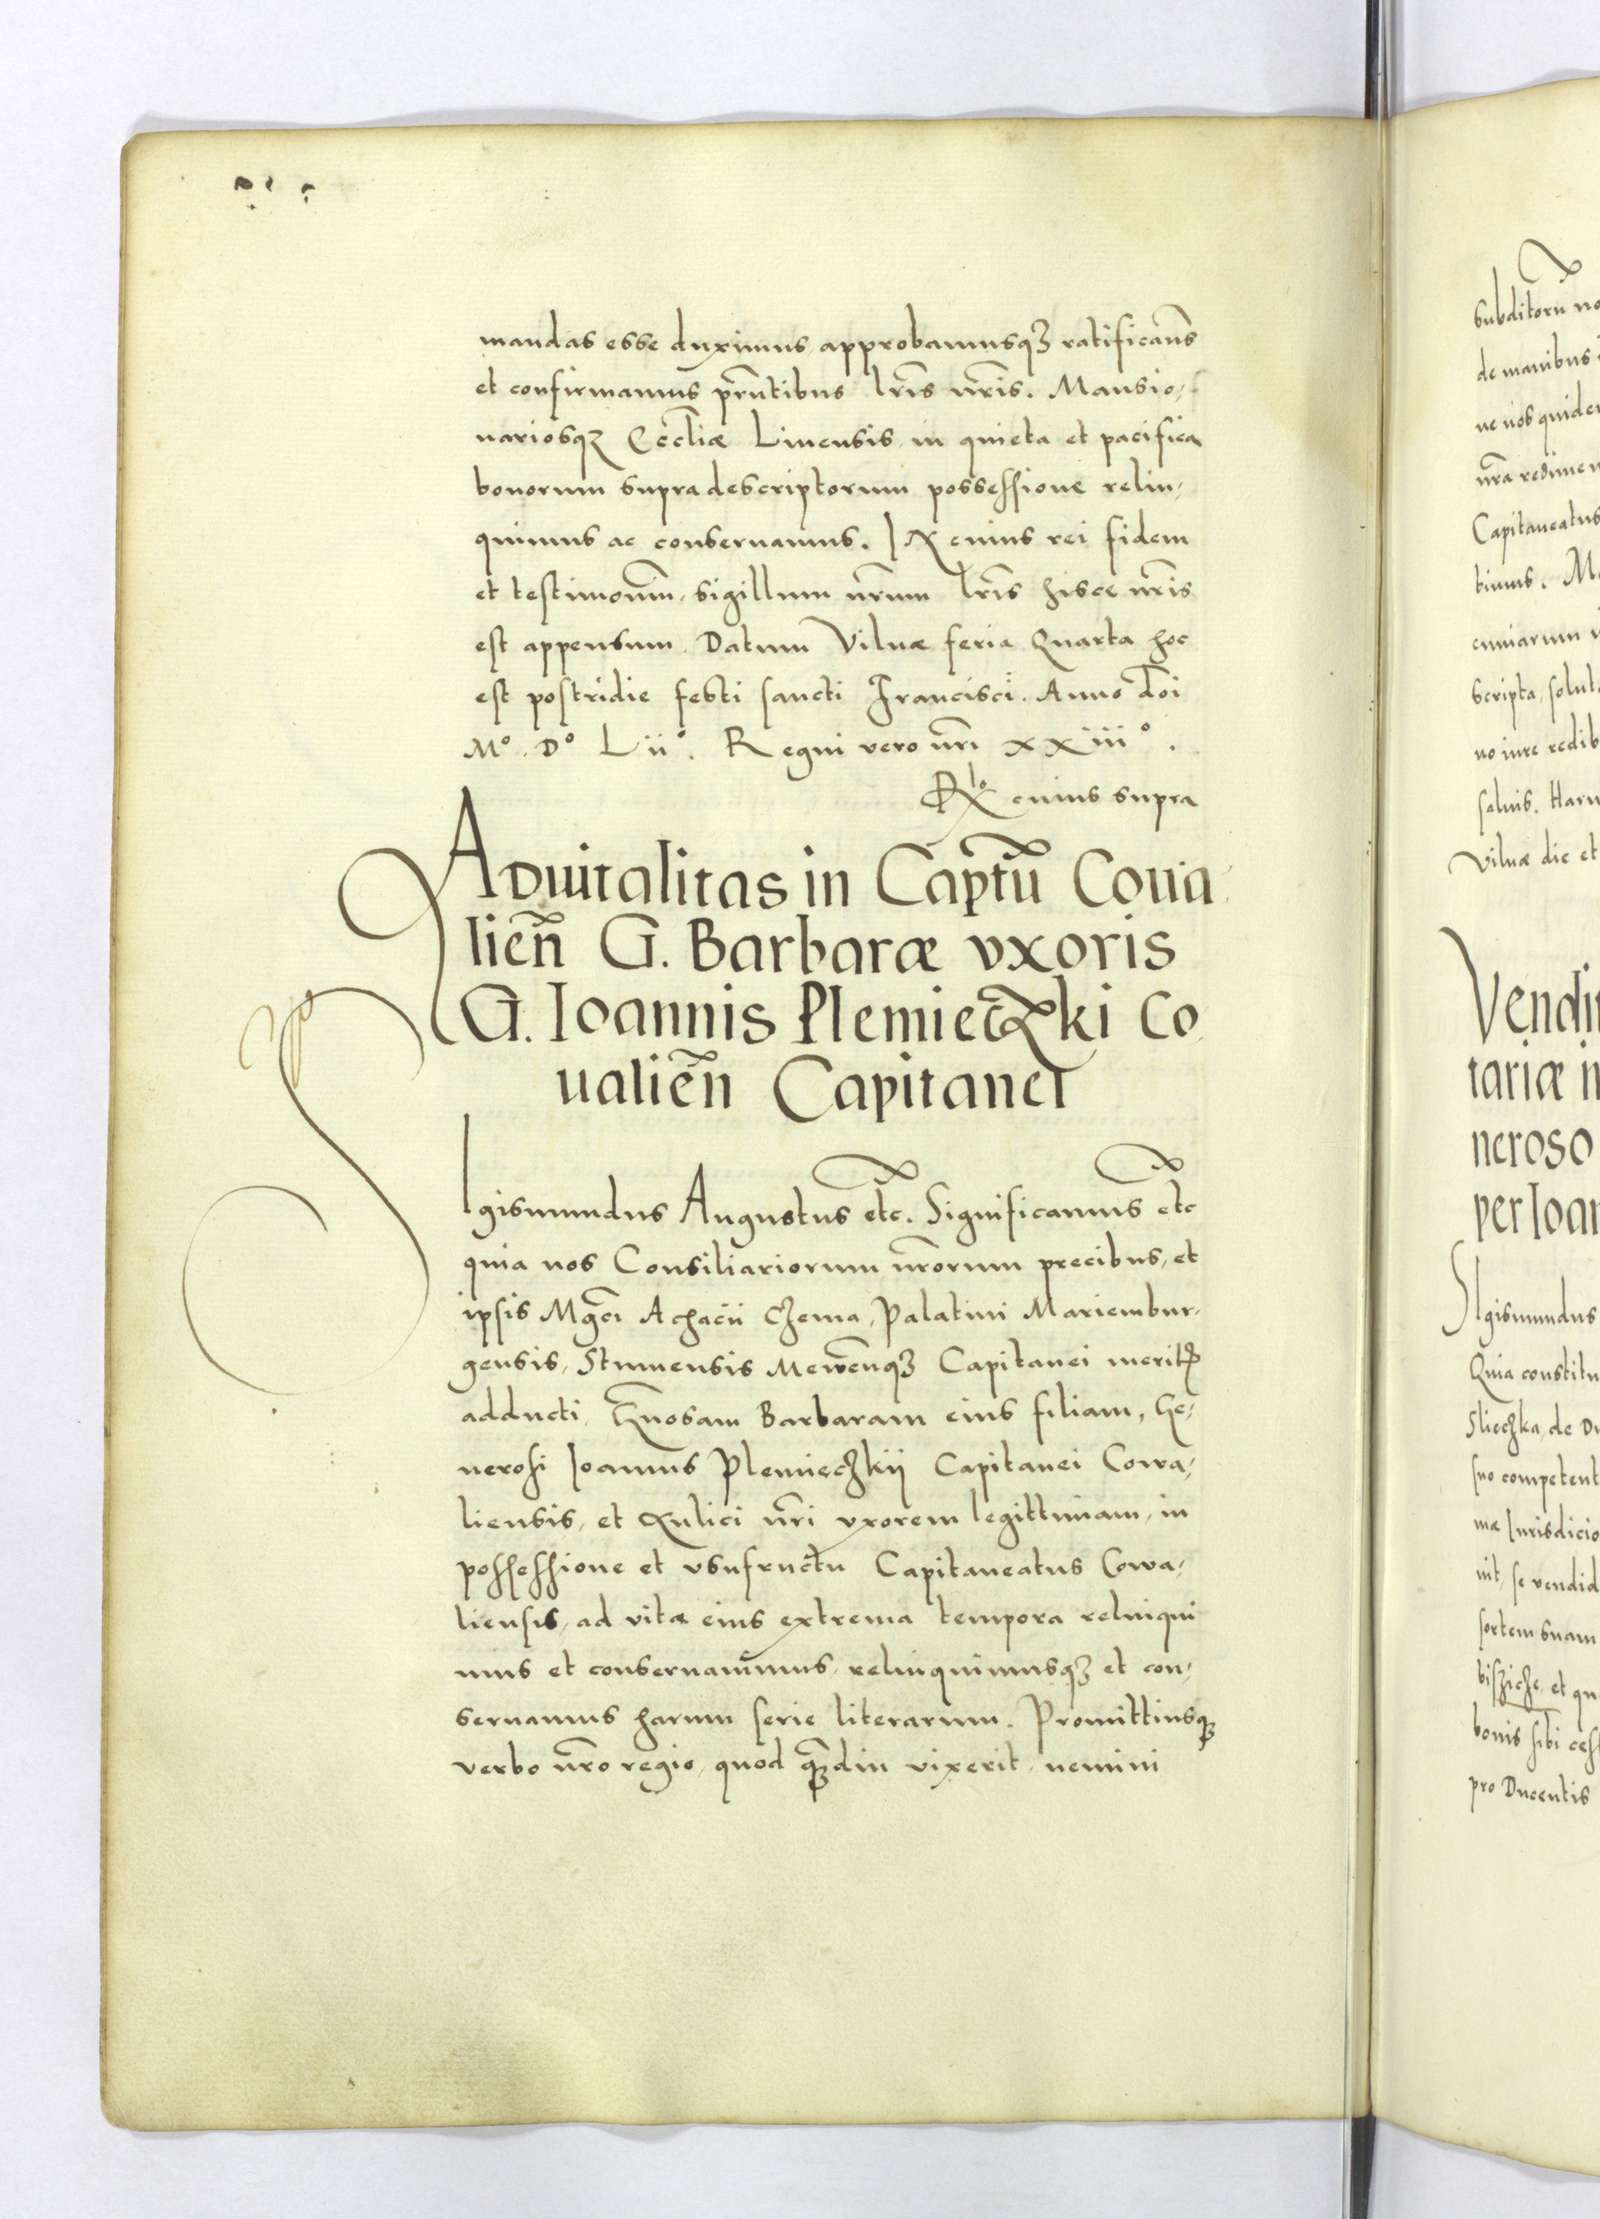 mandas esse duximus, approbamusqꝫ ratificam̄s
et confirmamus pr̄ntibus lr̄is nr̄is. Mansio-
nariosqꝫ Eccl̄iæ Linensis in quieta et pacifica
bonorum supra descriptorum possessione relin-
quimus ac conseruamus. In cuius rei fidem
et testimoniū, sigillum nr̄um lr̄is hisce nr̄is
est appensum. Datum Vilnæ feria Quarta hoc
est postridie festi sancti Francisci. Anno Dn̄i
Mº. Dº Liiº. Regni vero nr̄i xxiiiº.
Rº cuius supra
Aduitalitas in Captū Coua-
lien̄ G. Barbaræ vxoris
G. Ioannis Plemieczki Co-
ualien̄ Capitanei
Sigismundus Augustus etc. Significamus etc
quia nos Consiliariorum nr̄orum precibus, et
ipsis Mg̅ci Achacii Czema, Palatini Mariembur-
gensis, Stumensis Mewen̄qꝫ Capitanei meritis
adducti, G̅nosam Barbaram eius filiam, Ge-
nerosi Ioannis Plemieczkij Capitanei Cowa-
liensis, et Aulici nr̄i vxorem legittimam, in
possessione et vsufructu Capitaneatus Cowa-
liensis, ad vitæ eius extrema tempora relinqui
mus et conseruamus, relinquimusqꝫ et con-
seruamus harum serie literarum. Promittimsqꝫ
verbo nr̄o regio, quod qꝫdiu vixerit, nemini
subditorū no
de manibus
ne nos quidem
nr̄a redimen
Capitaneatus
timus. Ma
cuniarum
scripta, solut
no iure redib
saluis. Haru
Vilnæ die et
Vendit
tariæ in
neroso
per Ioan
Sigismundus
Quia constitu
Slieczka, de Du
suo competent
mæ Iurisdicio
uit, se vendid
sortem suam
bisziche, et qu
bonis sibi cess
pro Ducentis